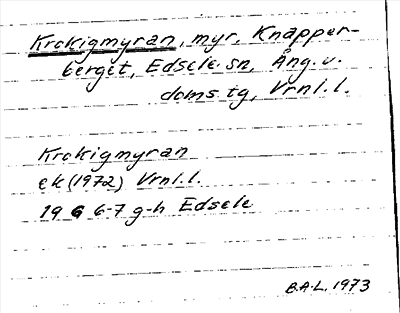 Krokigmyran, myr, Knäpper-
berget, Edsele sn, Ång. v.
doms tg, Vrnl. l.
Krokigmyran
ek (1972) Vrnl. l.
19 G 6-7 g-h Edsele
B.A.L. 1973